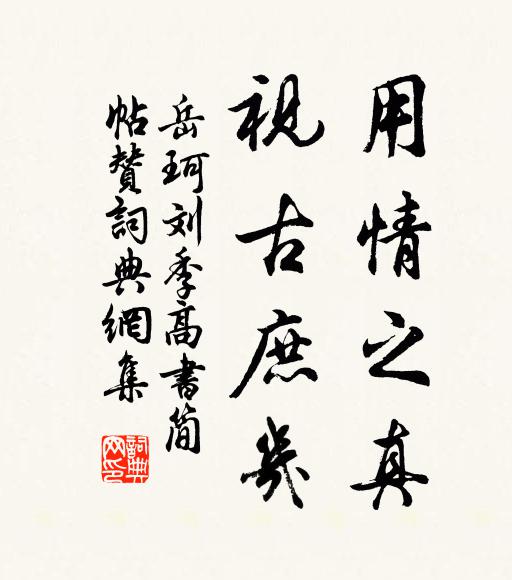 用情之真
視古庶幾
岳珂刘季高書简
帖贊詞典網集
詞典网印